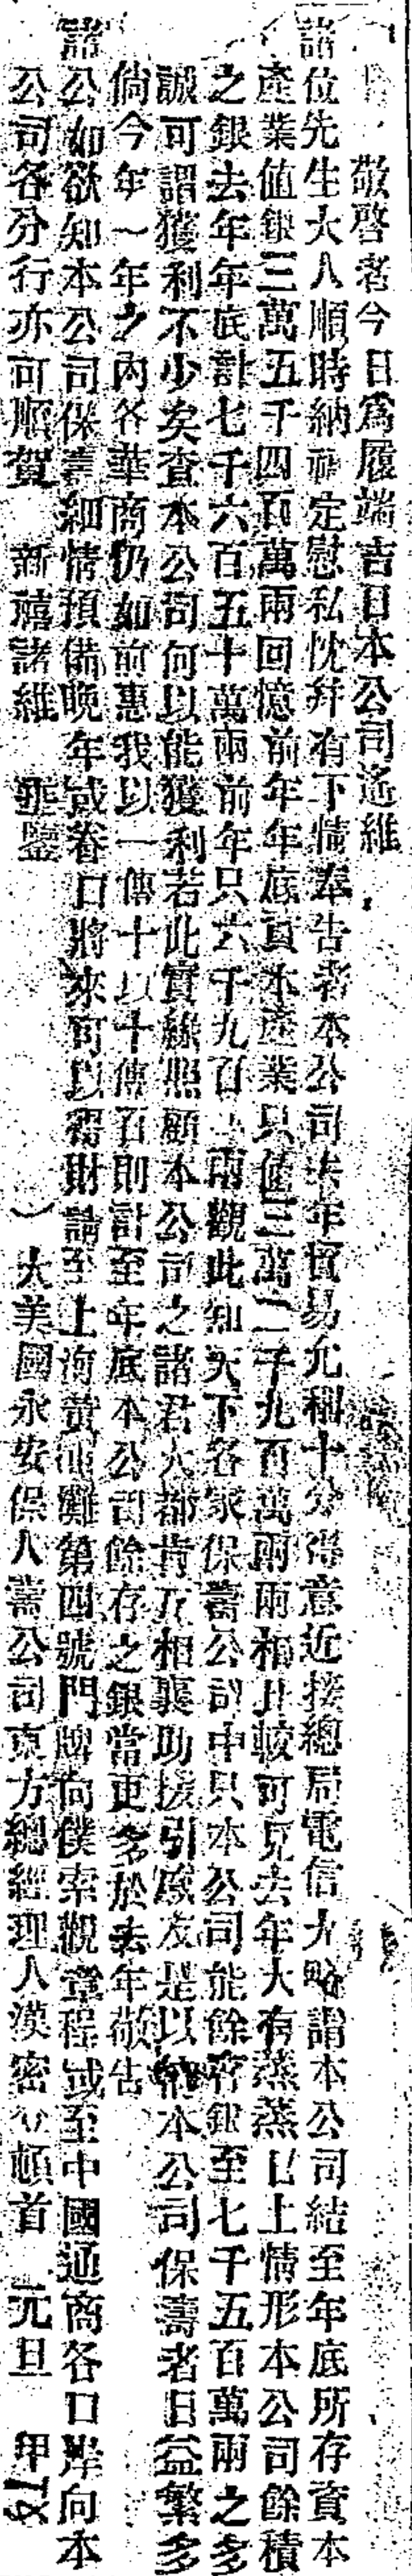 敬啓者今日爲履端吉日本公司遙維
諸位先生大人順時納祜定慰私忱幷有下情奉告者本公司去年貿易尤稱十分得意近接總局電信大略謂本公司結至年底所存資本
產業值銀三萬五千四百萬兩回憶前年年底資本產業只值三萬二千九百萬兩兩相比較可見去年大有蒸蒸日上情形本公司餘積
之銀去年年底計七千六百五十萬兩前年只六千九百 兩觀此知天下各家保壽公司中只本公司能餘存銀至七千五百萬兩之多
誠可謂獲利不少矣查本公司何以能獲利若此實緣照顧本公司之諸君大都肯互相襄助援引戚友是以向本公司保壽者日益繁多
倘今年一年之內各華商仍如前惠我以一傳十以十傳百則計至年底本公司餘存之銀當更多於去年敬告
諸公如欲知本公司保壽細情預備晚年或眷口將來可以得財請至上海黃浦灘第四號門牌向僕索觀章程或至中國通商各口岸向本
公司各分行亦可順賀 新禧諸維 垂鑒 大美國永安保人壽公司東方總經理人漢密 頓首 元旦 甲